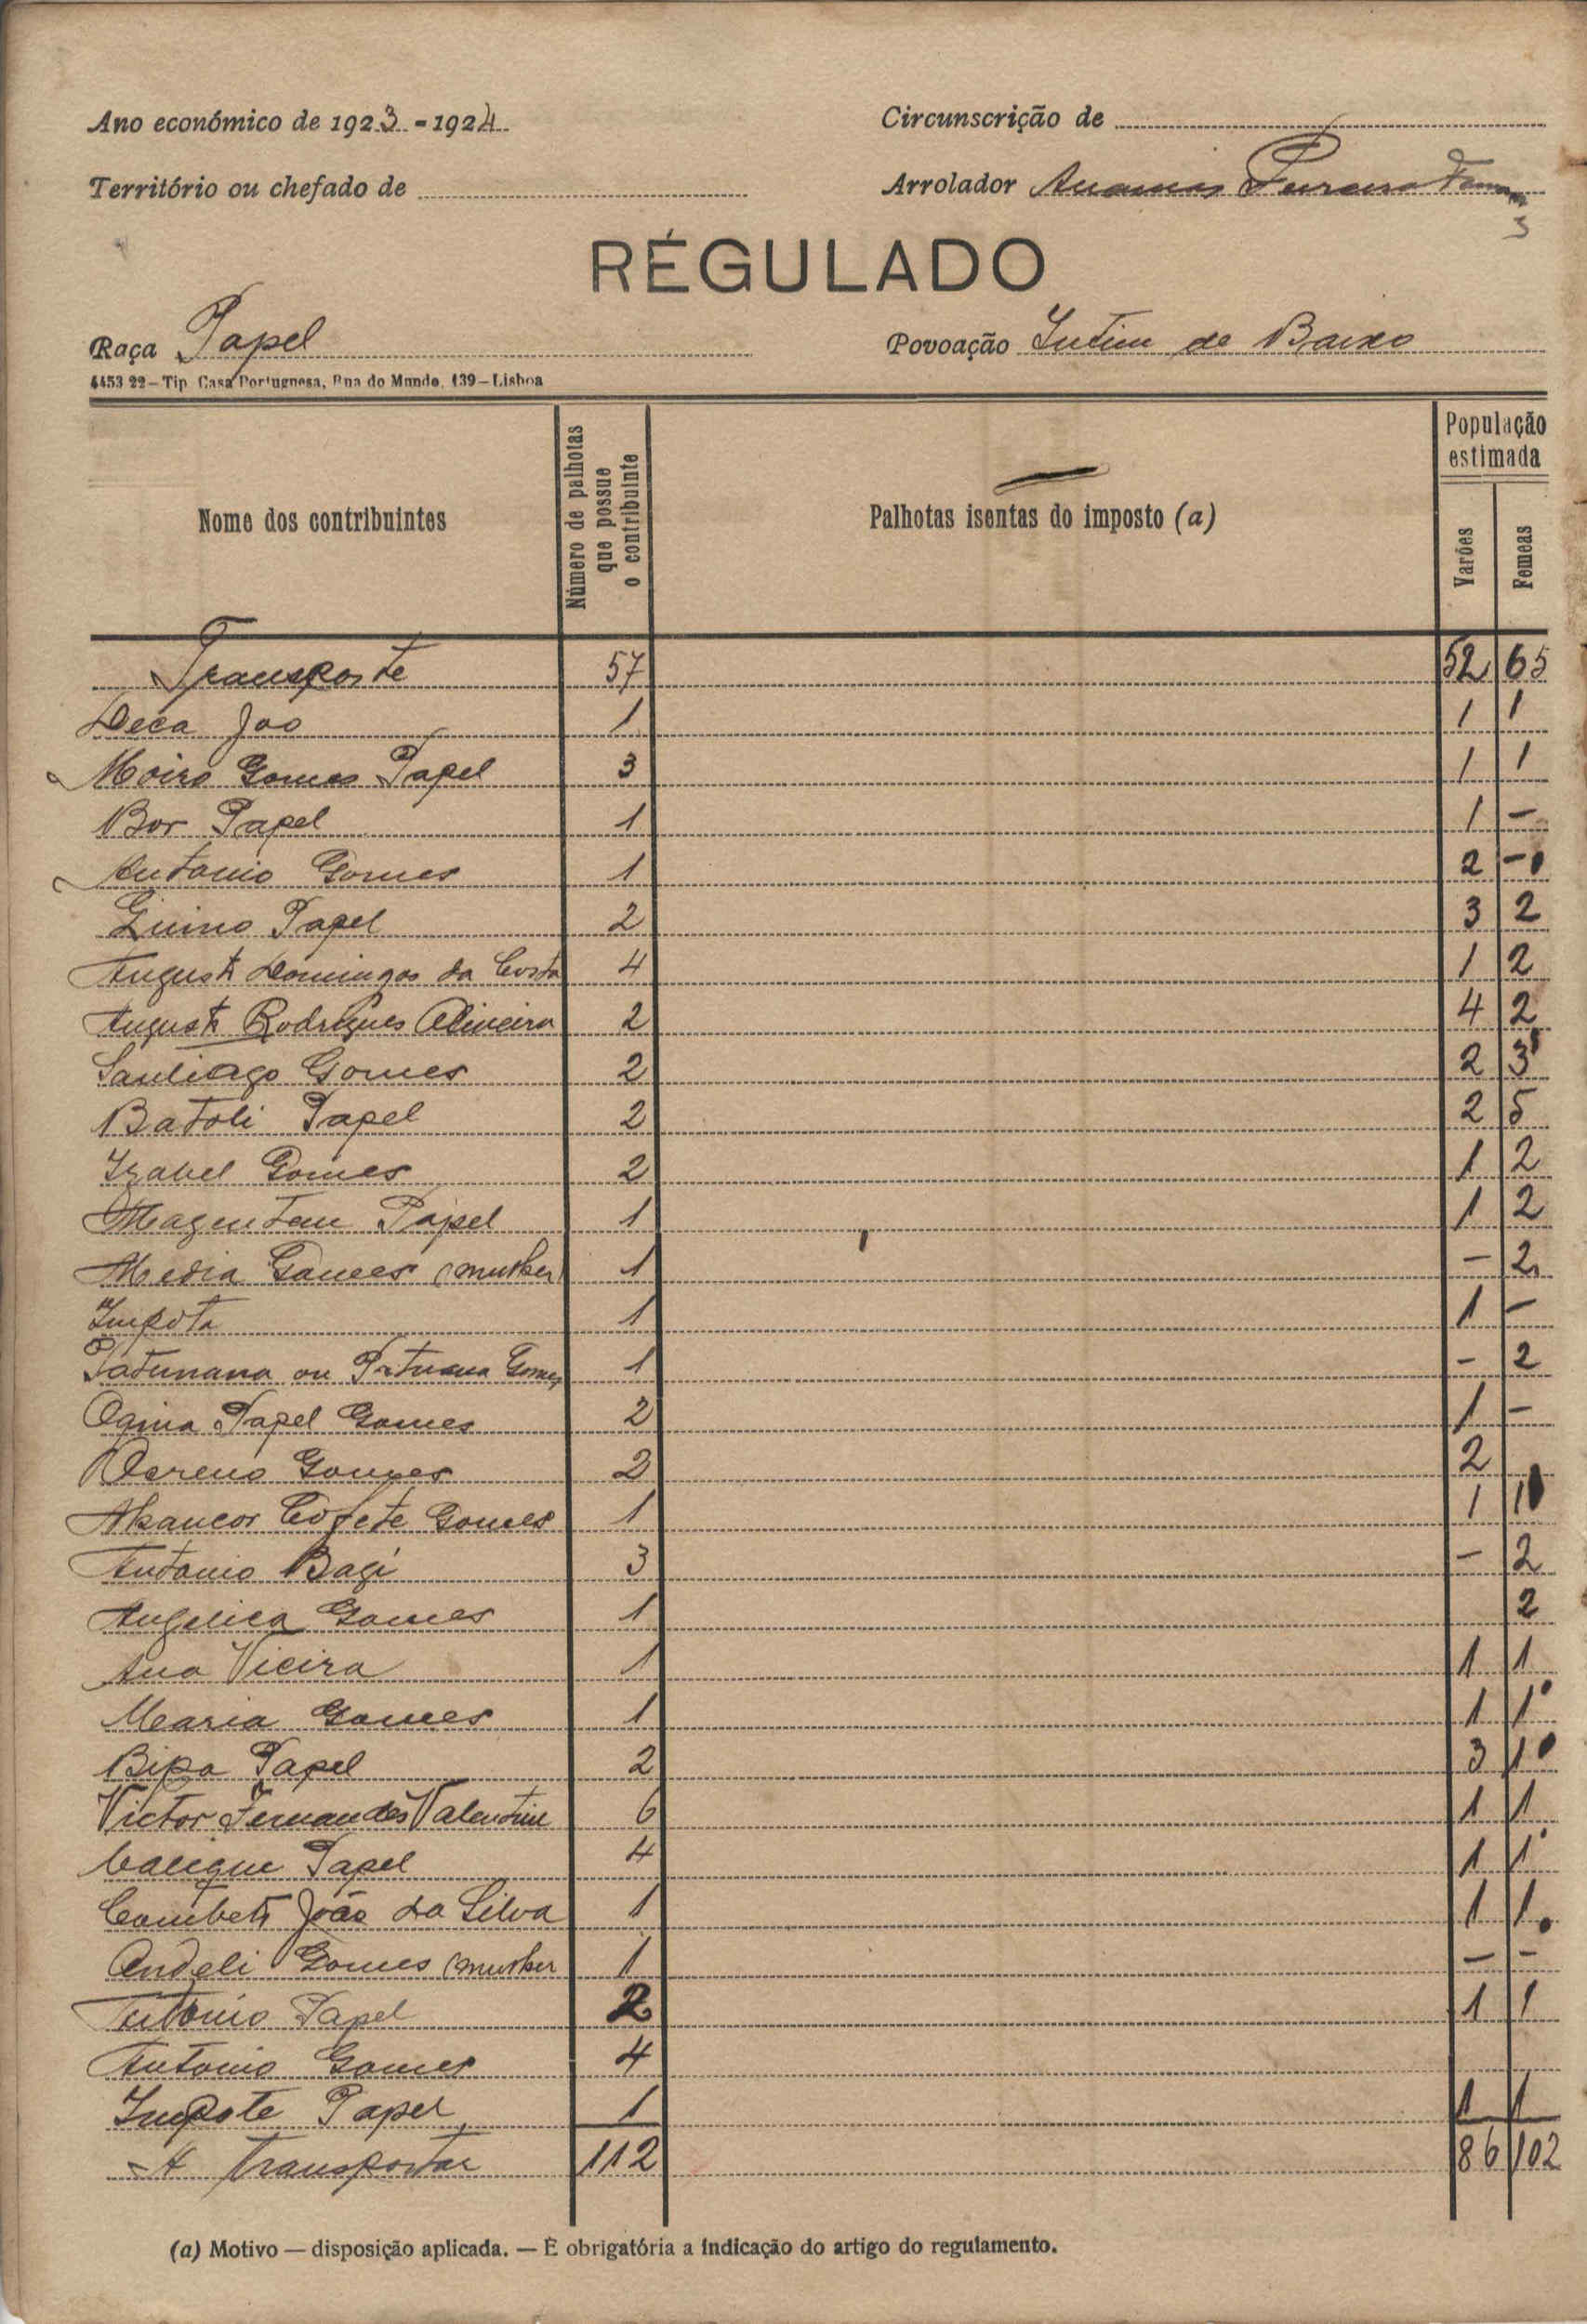 Ano económico de 1923-1924 Circunscrição de
Território ou chefado de Arrolador
3
RÉGULADO
Raça Papel Povoação Intim de Baixo
4453 22-Tip. Casa Portuguesa, Rua do Mundo, 139-Lisboa
Nome dos contribuintes Número de palhotas que possue o contribuinte Palhotas isentas do imposto (a) População estimada Varões Femeas
Transporte 57 52 65
Deca Joo 1 1 1
Moiro Gomes Papel 3 1 1
Bor Papel 1 1 -
Antonio Gomes 1 2 -
Papel 2 3 2
Augusto Domingos da Costa 4 1 2
Augusto Rodrigues Oliveira 2 4 2
Santiago Gomes 2 2 3
Batoli Papel 2 2 5
Izabel Gomes 2 1 2
Papel 1 1 2
Media Gomes (mulher) 1 - 2
Impota 1 1 -
Patunana ou Gomes 1 - 2
Papel Gomes 2 1 -
Gomes 2 2
Gomes 1 1 1
Antonio Bagi 3 - 2
Angelica Gomes 1 2
Ana Vieira 1 1 1
Maria Gomes 1 1 1
Bipa Papel 2 3 1
Victor Fernandes Valentim 6 1 1
Papel 4 1 1
João da Silva 1 1 1
Andeli Gomes (mulher 1 - -
Antonio Papel 2 1 1
Antonio Gomes 4
Impote Papel 1 1 1
A transportar 112 86 102
(a) Motivo — disposição aplicada. — É obrigatória a indicação do artigo do regulamento.